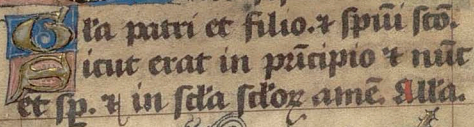 Gl̃a patri et filio. ⁊ sp̃ui sc̃o.
Sicut erat in pñcipio ⁊ nũc
et sp̃. ⁊ in scl̃a scl̃oꝝ amẽ. All̃a.